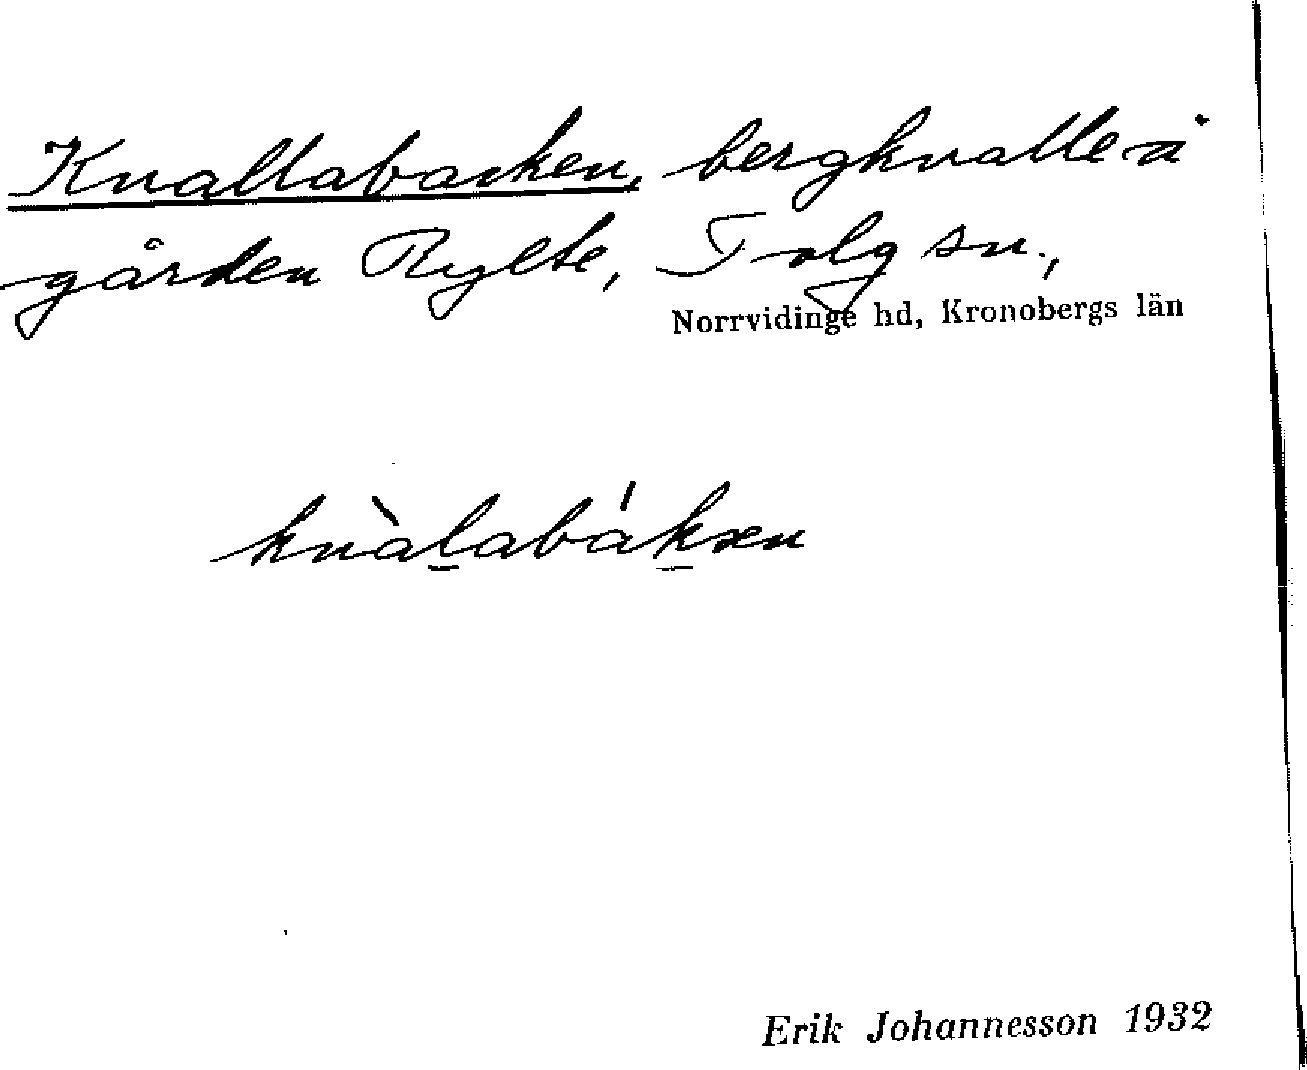 Knallabacken, bergknalle å
gården Rylte, Tolg sn.,
Norrvidinge hd, Kronobergs län
knàlabákæn
Erik Johannesson 1932